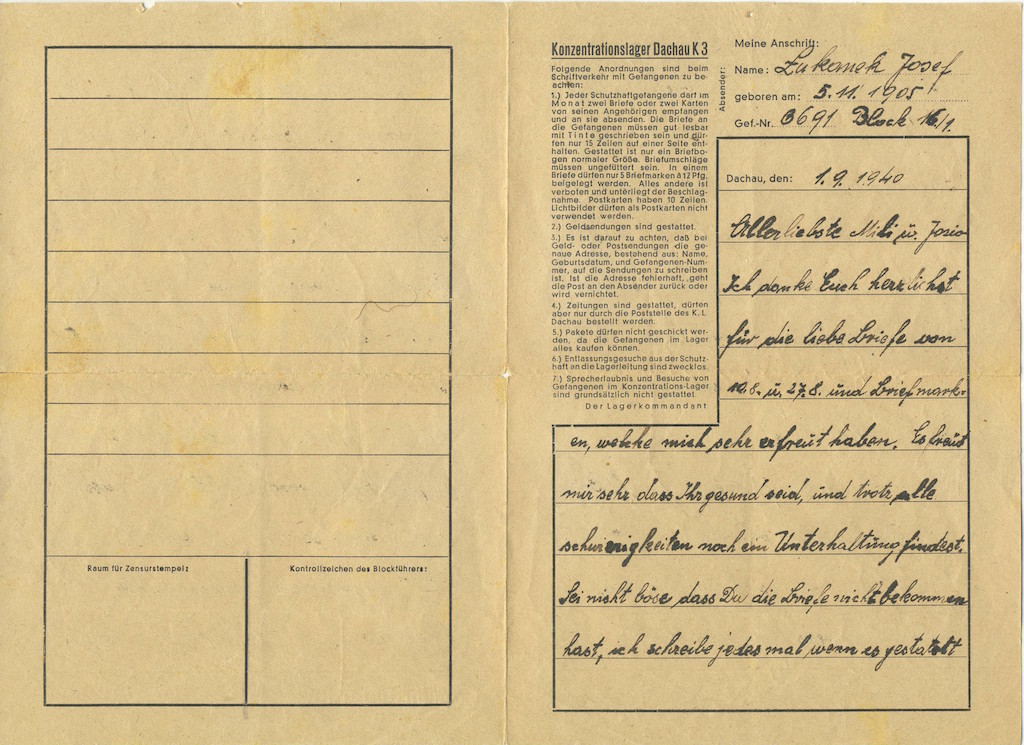 Raum für Zensurstempel:
Kontrollzeichen des Blockführers:
Konzentrationslager Dachau K 3
Folgende Anordnungen sind beim
Schriftverkehr mit Gefangenen zu be-
achten:
1.) Jeder Schutzhaftgefangene darf im
Monat zwei Briefe oder zwei Karten
von seinen Angehörigen empfangen
und an sie absenden. Die Briefe an
die Gefangenen müssen gut lesbar
mit Tinte geschrieben sein und dür-
fen nur 15 Zeilen auf einer Seite ent-
halten. Gestattet ist nur ein Briefbo-
gen normaler Größe. Briefumschläge
müssen ungefüttert sein. In einem
Briefe dürfen nur 5 Briefmarken à 12 Pfg.
beigelegt werden. Alles andere ist
verboten und unterliegt der Beschlag-
nahme. Postkarten haben 10 Zeilen.
Lichtbilder dürfen als Postkarten nicht
verwendet werden.
2.) Geldsendungen sind gestattet.
3.) Es ist darauf zu achten, daß bei
Geld- oder Postsendungen die ge-
naue Adresse, bestehend aus: Name,
Geburtsdatum, und Gefangenen-Num-
mer, auf die Sendungen zu schreiben
ist. Ist die Adresse fehlerhaft, geht
die Post an den Absender zurück oder
wird vernichtet.
4.) Zeitungen sind gestattet, dürfen
aber nur durch die Poststelle des K. L.
Dachau bestellt werden.
5.) Pakete dürfen nicht geschickt wer-
den, da die Gefangenen im Lager
alles kaufen können.
6.) Entlassungsgesuche aus der Schutz-
haft an die Lagerleitung sind zwecklos.
7.) Sprecherlaubnis und Besuche von
Gefangenen im Konzentrations-Lager
sind grundsätzlich nicht gestattet
Der Lagerkommandant
Absender:
Meine Anschrift:
Name: Josef
geboren am: 5. 11. 1905
Gef.-Nr. 6691 Block 16/1.
Dachau, den: 1. 9. 1940
Allerliebste Mili u. Josio
Ich danke Euch herzlichst
für die liebe Briefe von
u. 27.8. und Briefmark-
en, welche mich sehr erfreut haben. Es freut
mir sehr dass Ihr gesund seid, und trotz alle
schwierigkeiten noch ein Unterhaltung findest.
Sei nicht böse, dass Du die Briefe nicht bekommen
hast, ich schreibe jedes mal, wenn es gestattet